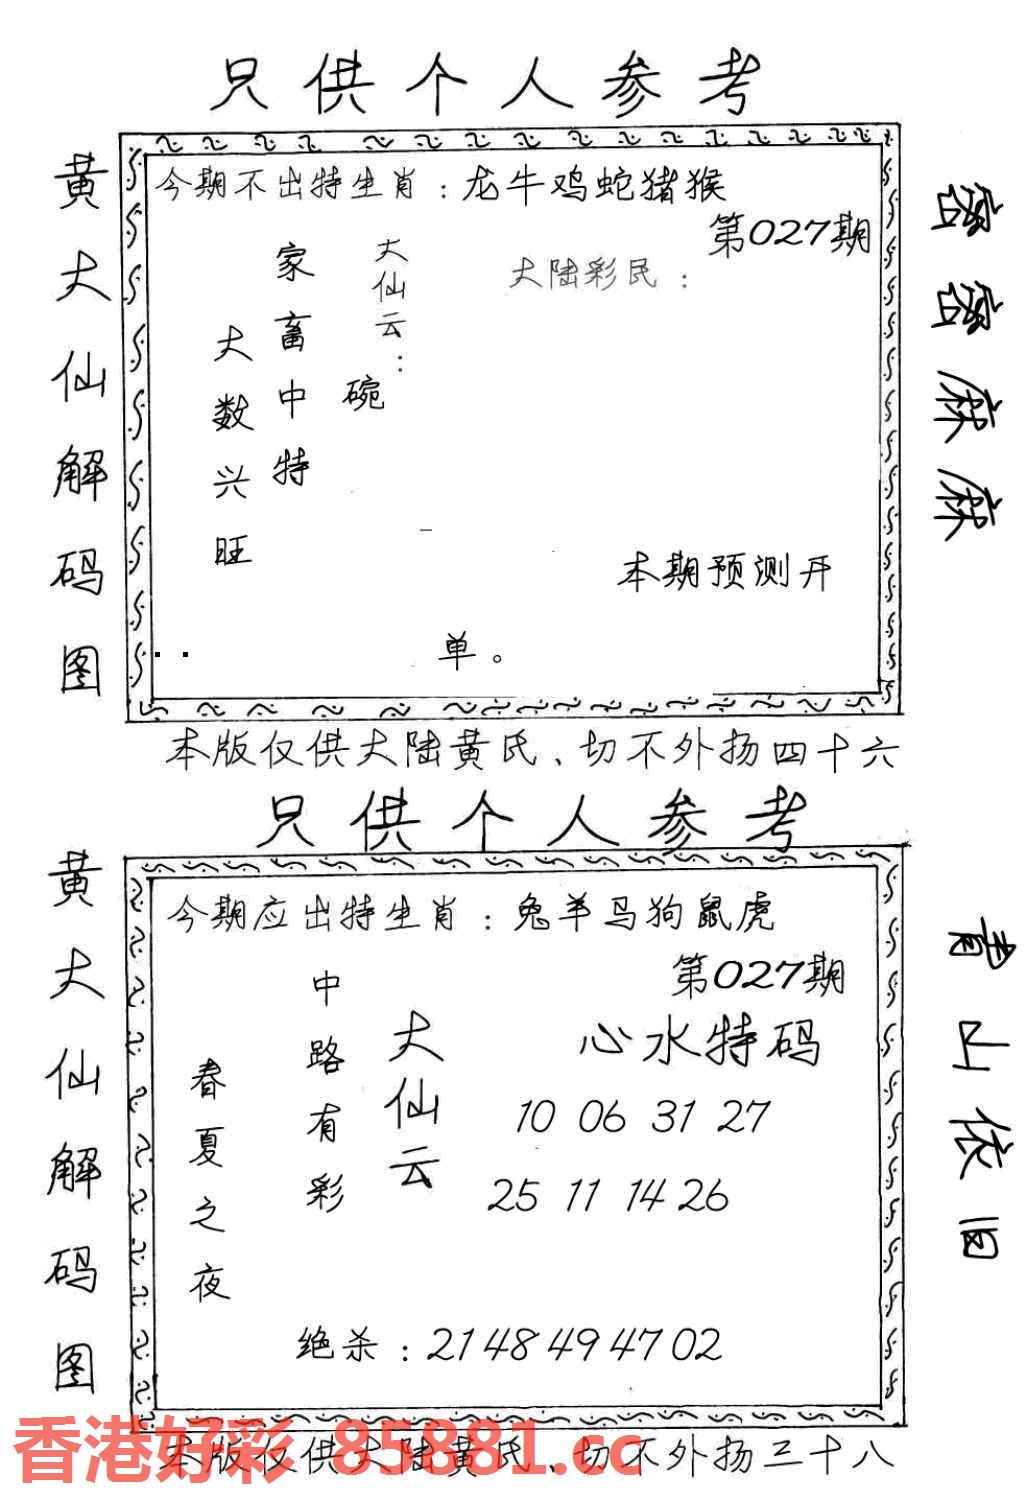 只供个人参考
黄大仙解码图
今期不出特生肖：龙牛鸡蛇猪猴
第027期
大陆彩民：
大仙云：
碗
家畜中特
大数兴旺
本期预测开
单。
密密麻麻
本版仅供大陆黄氏、切不外扬四十六
只供个人参考
黄大仙解码图
今期应出特生肖：兔羊马狗鼠虎
第027期
心水特码
10 06 31 27
25 11 14 26
大仙云
中路有彩
春夏之夜
绝杀：21 48 49 47 02
青山依旧
本版仅供大陆黄氏、切不外扬三十八
香港好彩 85881.cc